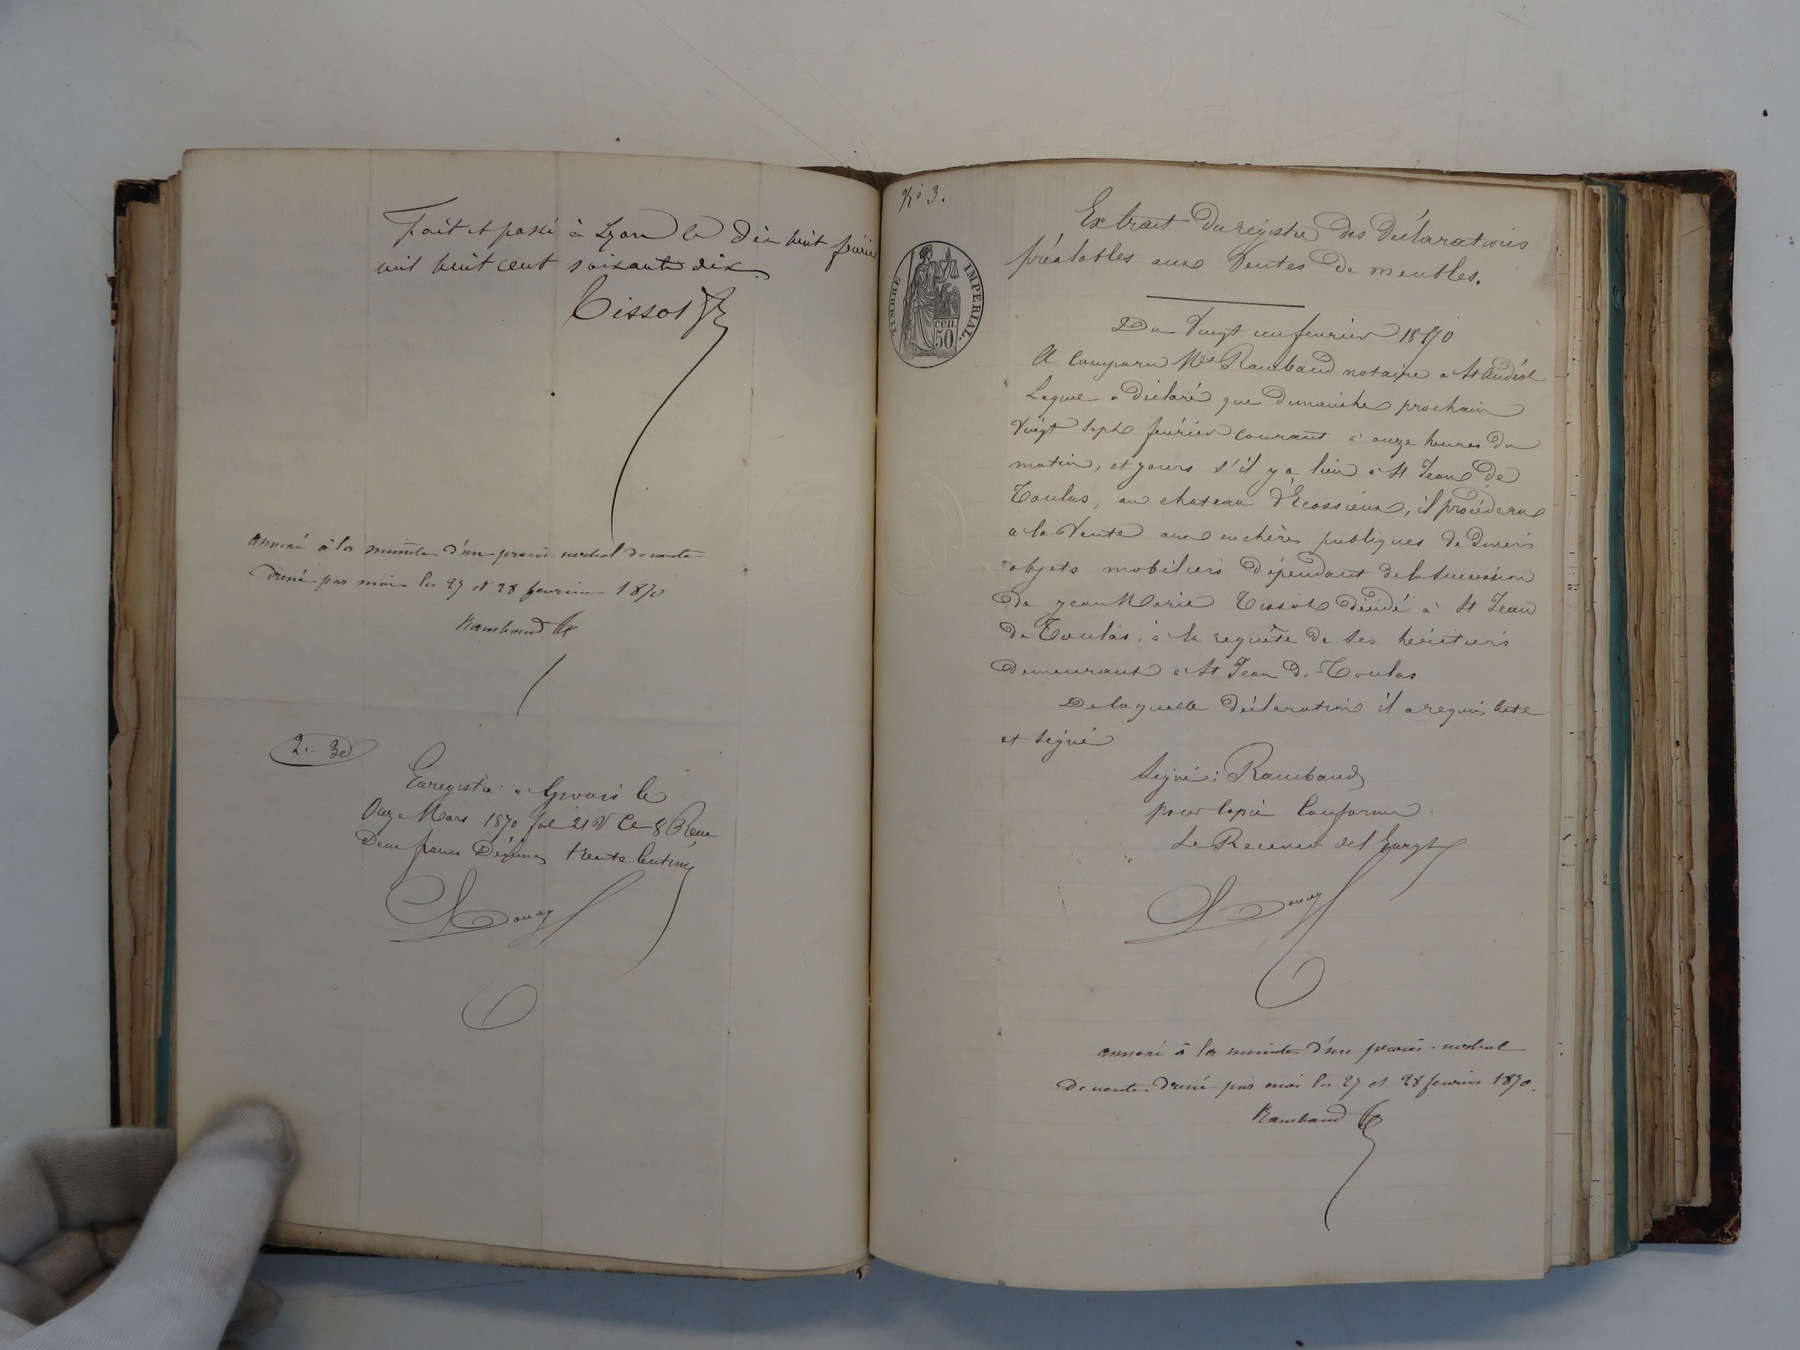 Fait et passé à Lyon le dix huit février
mil huit cent soixante dix
Tissot
annexé à la minute d'un procès-verbal de vente
dressé par moi les 27 et 28 février 1870
Rambaud
2. 30
Enregistré à Givors le
Onze Mars 1870 fol 21 V Ce 8 Reçu
Deux francs Décimes trente centimes
No 3.
Extrait du registre des Déclarations
préalables aux Ventes de meubles.
TIMBRE IMPERIAL.
50 CEN
Du Vingt un fevrier 1870
A comparu Me Rambaud notaire a St Andéol
Lequel a déclaré que dimanche prochain
Vingt sept février courant à onze heures du
matin, et jours s'il y a lieu à St Jean de
Toulas, au chateau d'Ecossieux, il procédera
a la Vente aux enchères publiques de divers
objets mobiliers dépendant de la succession
de Jean Marie Tissot décédé à St Jean
de Toulas, à la requête de ses héritiers
demeurant a St Jean de Toulas
De laquelle déclaration il a requis acte
et signé
Signé: Rambaud
pour copie conforme.
Le Receveur de l'Enregt
annexé à la minute d'un procès-verbal
de vente dressé par moi les 27 et 28 fevrier 1870.
Rambaud